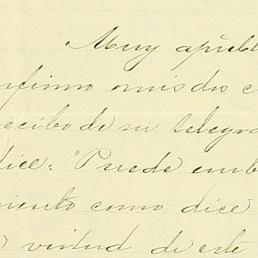 Muy apreble
nfimo omis dio c
ecibo de su telegra
dice: "Puede emb
miento como dice
virtud de este